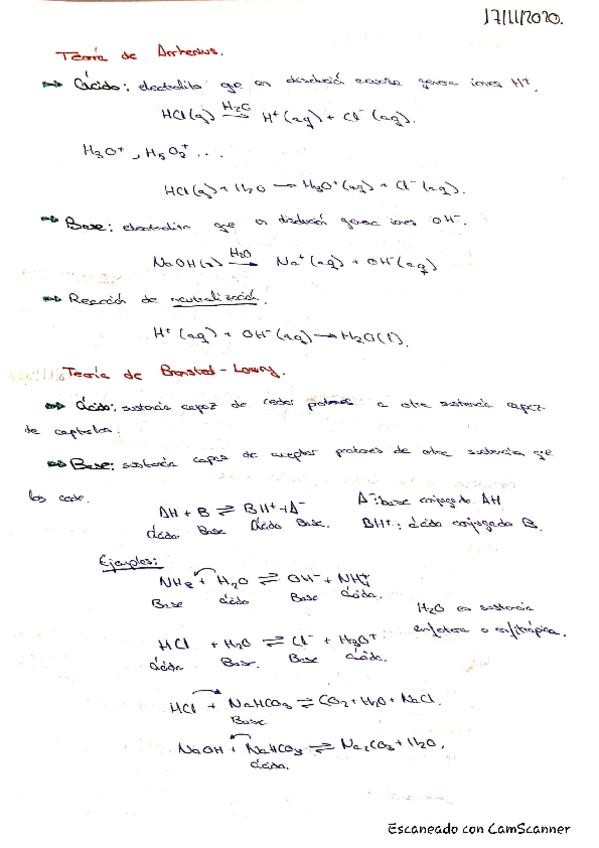 17/11/2020.
Teoría de Arrhenius.
Ácido: electrolito que en disolución acuosa genera iones H⁺.
HCl(g) H₂O→ H⁺(aq) + Cl⁻(aq).
H₃O⁺, H₅O₂⁺...
HCl(g) + H₂O → H₃O⁺(aq) + Cl⁻(aq).
Base: electrolito que en disolución genera iones OH⁻.
NaOH(s) H₂O→ Na⁺(aq) + OH⁻(aq)
Reacción de neutralización.
H⁺(aq) + OH⁻(aq) → H₂O(l).
Teoría de Bronsted-Lowry.
Ácido: sustancia capaz de ceder protones a otra sustancia capaz
de captarlos.
Base: sustancia capaz de aceptar protones de otra sustancia que
los cede.
AH + B ⇌ BH⁺ + A⁻ A⁻: base conjugada AH
Ácido Base Ácido Base. BH⁺: ácido conjugado B.
Ejemplos:
NH₃ + H₂O ⇌ OH⁻ + NH₄⁺
Base ácido Base ácido.
H₂O es sustancia
anfótera o anfiprópica.
HCl + H₂O ⇌ Cl⁻ + H₃O⁺
ácido Base. Base ácido.
HCl + NaHCO₃ ⇌ CO₂ + H₂O + NaCl.
Base
NaOH + NaHCO₃ ⇌ Na₂CO₃ + H₂O.
ácido.
Escaneado con CamScanner